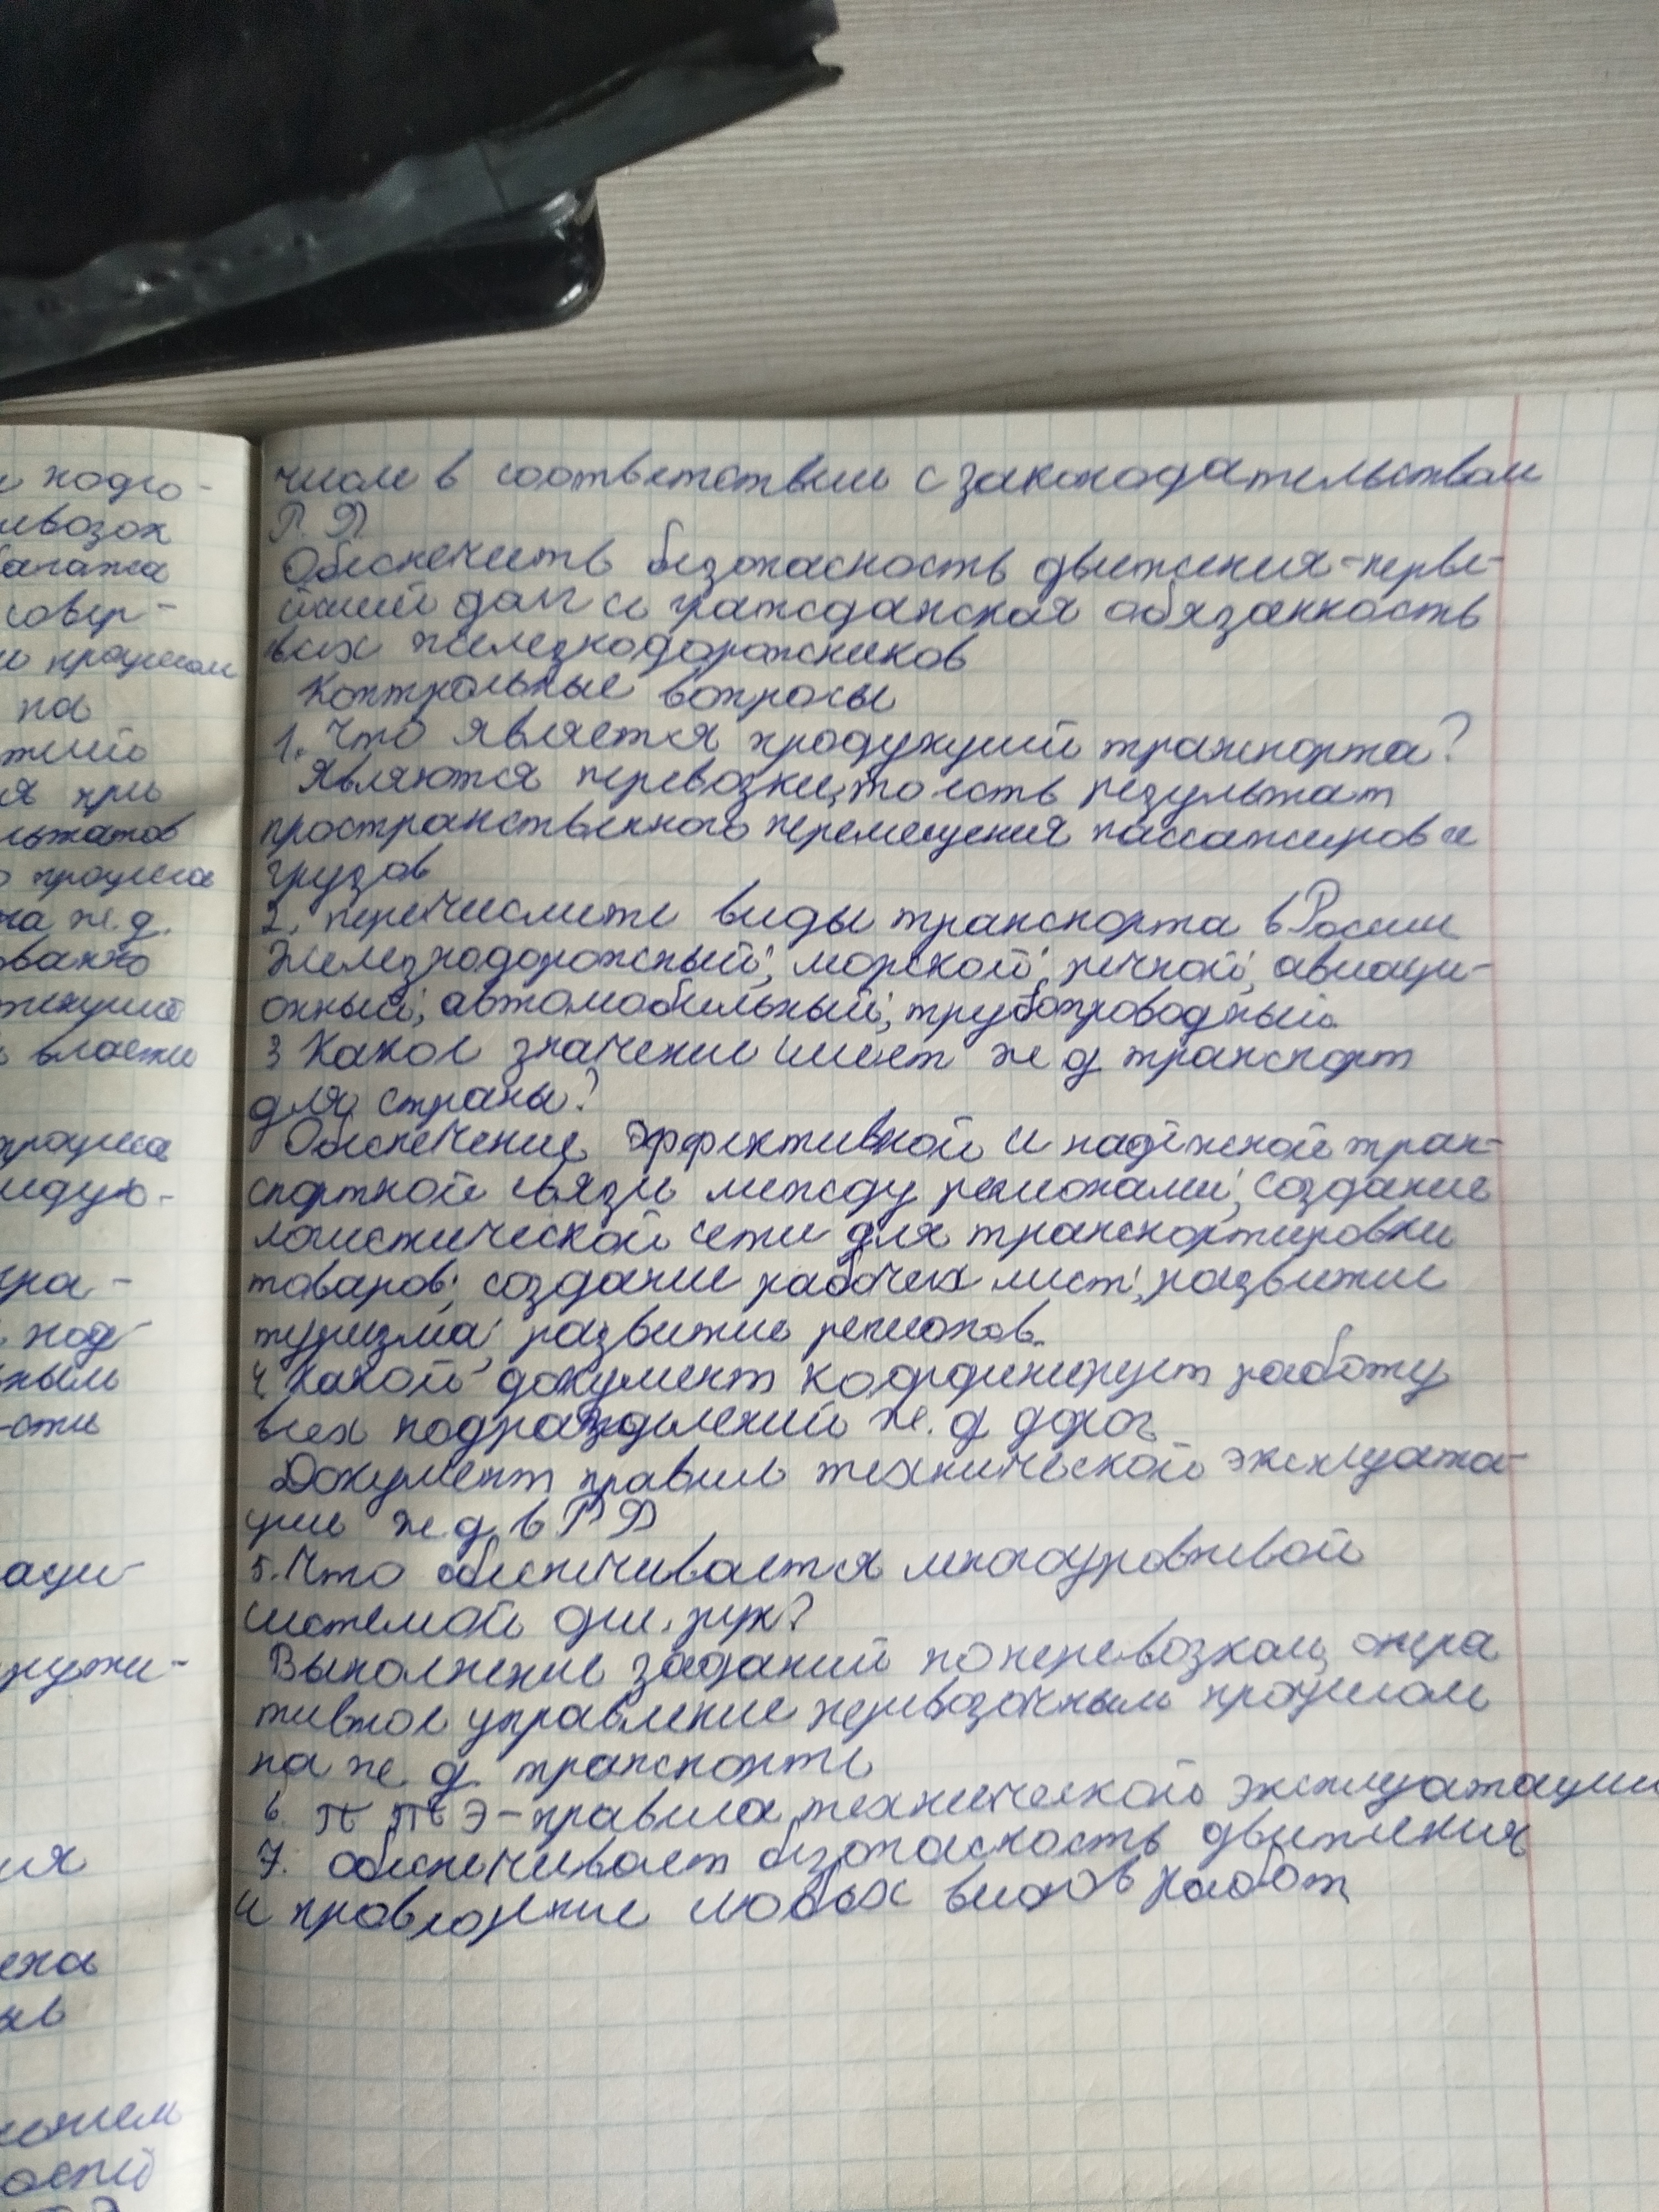 и подго-
ревозок
багажа
совер-
и процессом
на
тший
я при
льтатов
о процесса
на ж.д.
ованно
текущие
власти
процесса
ледую-
гра-
под
ным
-сти
аци-
ружи-
ия
числе в соответствии с законодательством
Р.Ф
Обеспечить безопасность движения-перве-
йший долг и гражданская обязанность
всех железнодорожников
Контрольные вопросы
1. Что является продукций транспорта?
Являются перевозки, то есть результат
пространственного перемещения пассажиров и
грузов
2. перечислите виды транспорта в России
Железнодорожный; морской; речной; авиаци-
онный; автомобильный; трубопроводный.
3 Какое значение имеет ж д транспорт
для страны?
Обеспечение эффективной и надёжной тран-
спортной связи между регионами; создание
логистической сети для транспортировки
товаров; создание рабочих мест; развитие
туризма; развитие регионов.
4 Какой документ координирует работу
всех подразделений ж.д дорог
Документ правил технической эксплуата-
ции ж.д. в РФ
5. Что обеспечивается многоуровневой
системой дис. рук?
Выполнение заданий по перевозкам, опера
тивное управление перевозочным процессом
на ж д транспорте
6. П ТЭ-правила технической эксплуатации
7. обеспечивает безопасность движения
и проведение любых видов работ